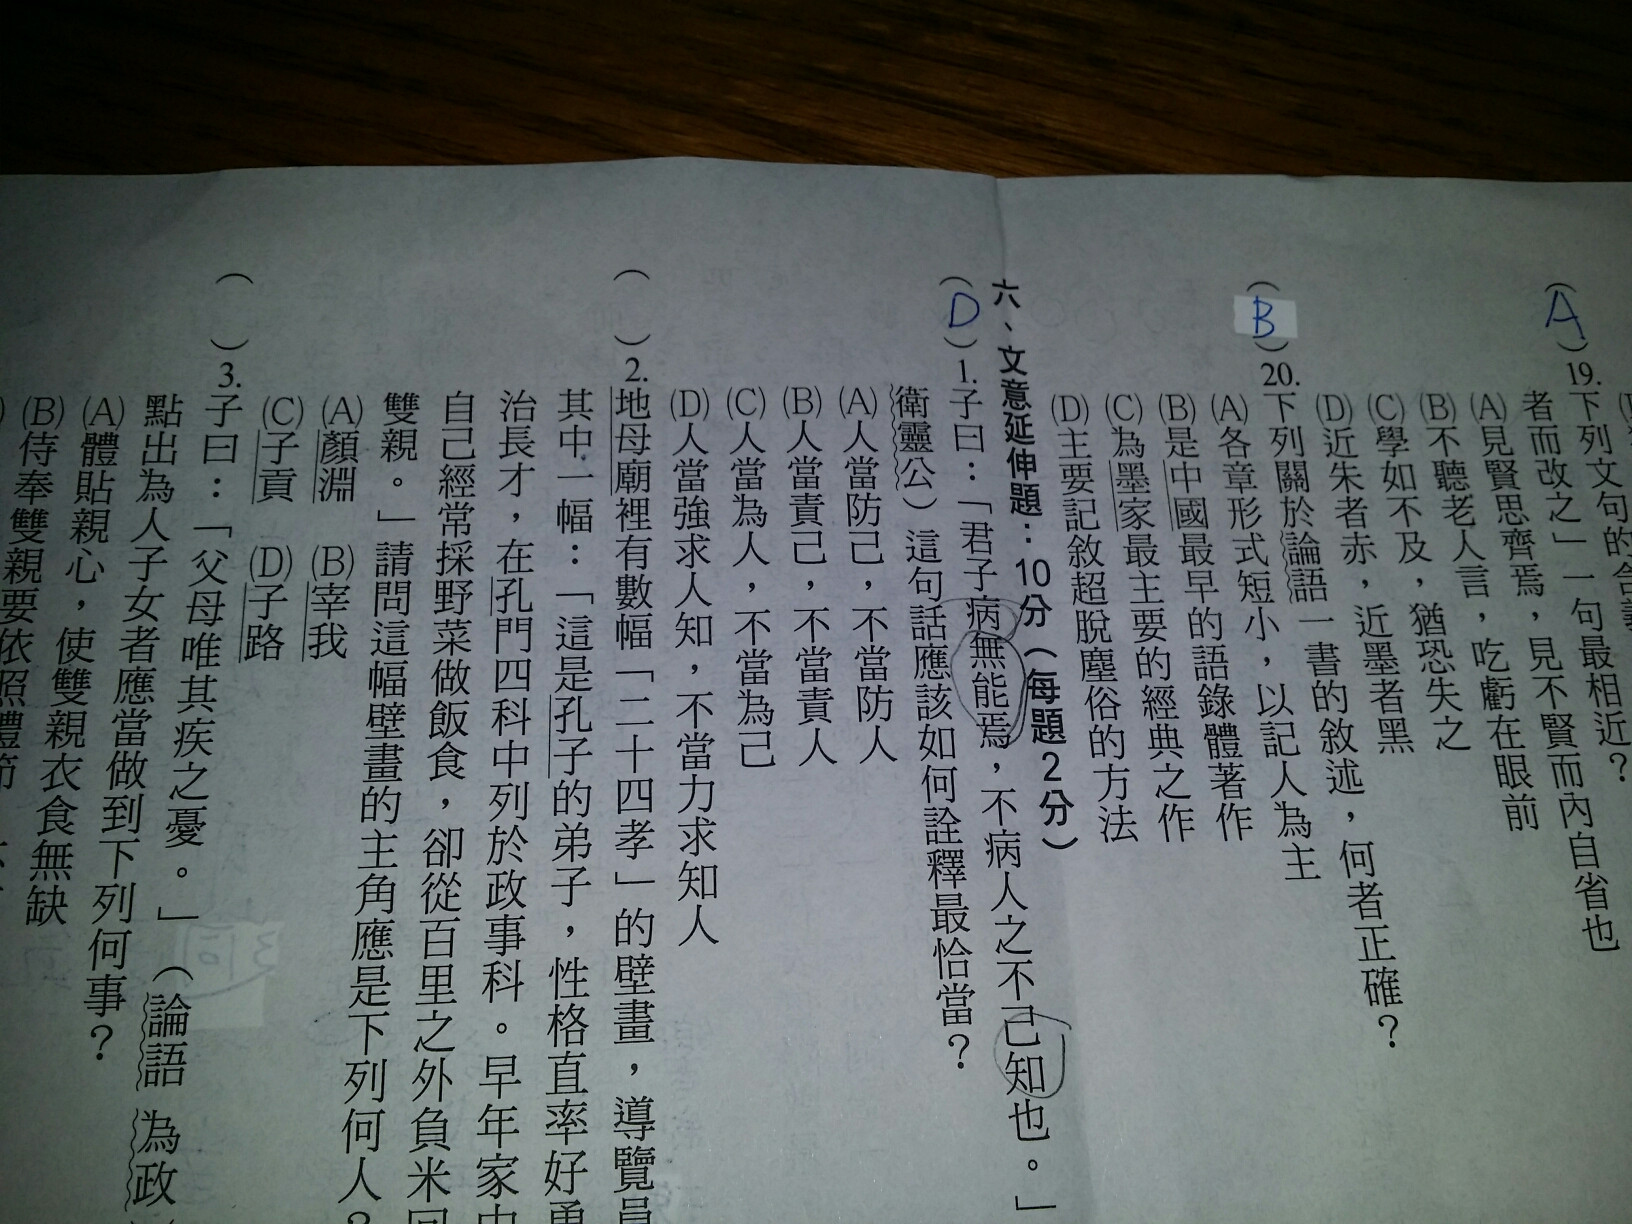 19.下列文句的含義
者而改之」一句最相近？
(A)見賢思齊焉，見不賢而內自省也
(B)不聽老人言，吃虧在眼前
(C)學如不及，猶恐失之
(D)近朱者赤，近墨者黑
A
20.下列關於論語一書的敘述，何者正確？
(A)各章形式短小，以記人為主
(B)是中國最早的語錄體著作
(C)為墨家最主要的經典之作
(D)主要記敘超脫塵俗的方法
B
六、文意延伸題：10分（每題2分）
(D)1.子曰：「君子病無能焉，不病人之不己知也。」
衛靈公）這句話應該如何詮釋最恰當？
(A)人當防己，不當防人
(B)人當責己，不當責人
(C)人當為人，不當為己
(D)人當強求人知，不當力求知人
( )2.地母廟裡有數幅「二十四孝」的壁畫，導覽員
其中一幅：「這是孔子的弟子，性格直率好勇
治長才，在孔門四科中列於政事科。早年家中
自己經常採野菜做飯食，卻從百里之外負米回
雙親。」請問這幅壁畫的主角應是下列何人？
(A)顏淵 (B)宰我
(C)子貢 (D)子路
( )3.子曰：「父母唯其疾之憂。」（論語 為政
點出為人子女者應當做到下列何事？
(A)體貼親心，使雙親衣食無缺
(B)侍奉雙親要依照禮節